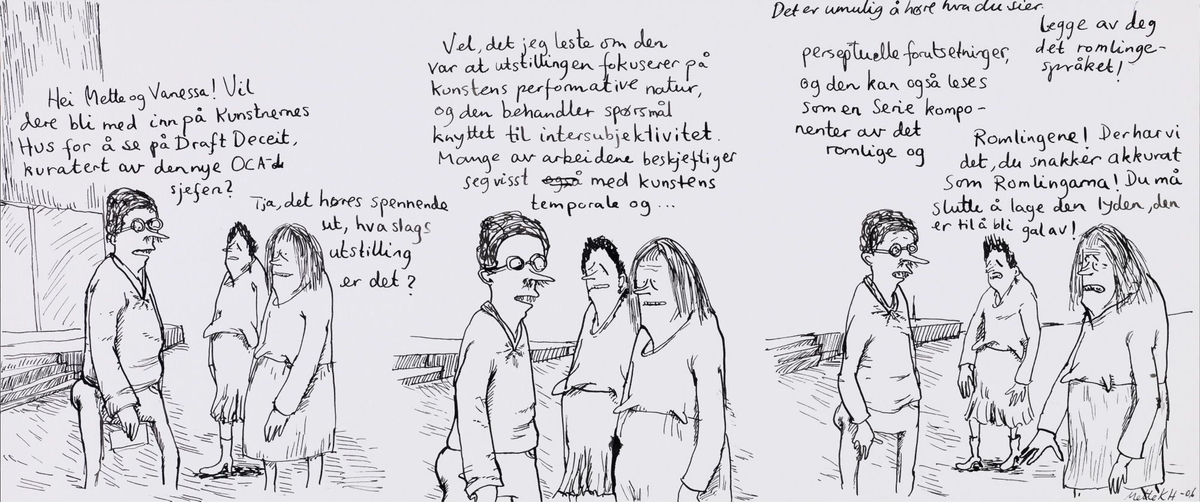 Hei Mette og Vanessa! Vil
dere bli med inn på Kunstnernes
Hus for å se på Draft Deceit,
kuratert av den nye OCA-
sjefen?
Tja, det høres spennende
ut, hva slags
utstilling
er det?
Vel, det jeg leste om den
var at utstillingen fokuserer på
kunstens performative natur,
og den behandler spørsmål
knyttet til intersubjektivitet.
Mange av arbeidene beskjeftiger
seg visst også med kunstens
temporale og ...
Det er umulig å høre hva du sier.
perseptuelle forutsetninger,
og den kan også leses
som en serie kompo-
nenter av det
romlige og
Legge av deg
det romlinge-
språket!
Romlingene! Der har vi
det, du snakker akkurat
som Romlingarna! Du må
slutte å lage den lyden, den
er til å bli gal av!